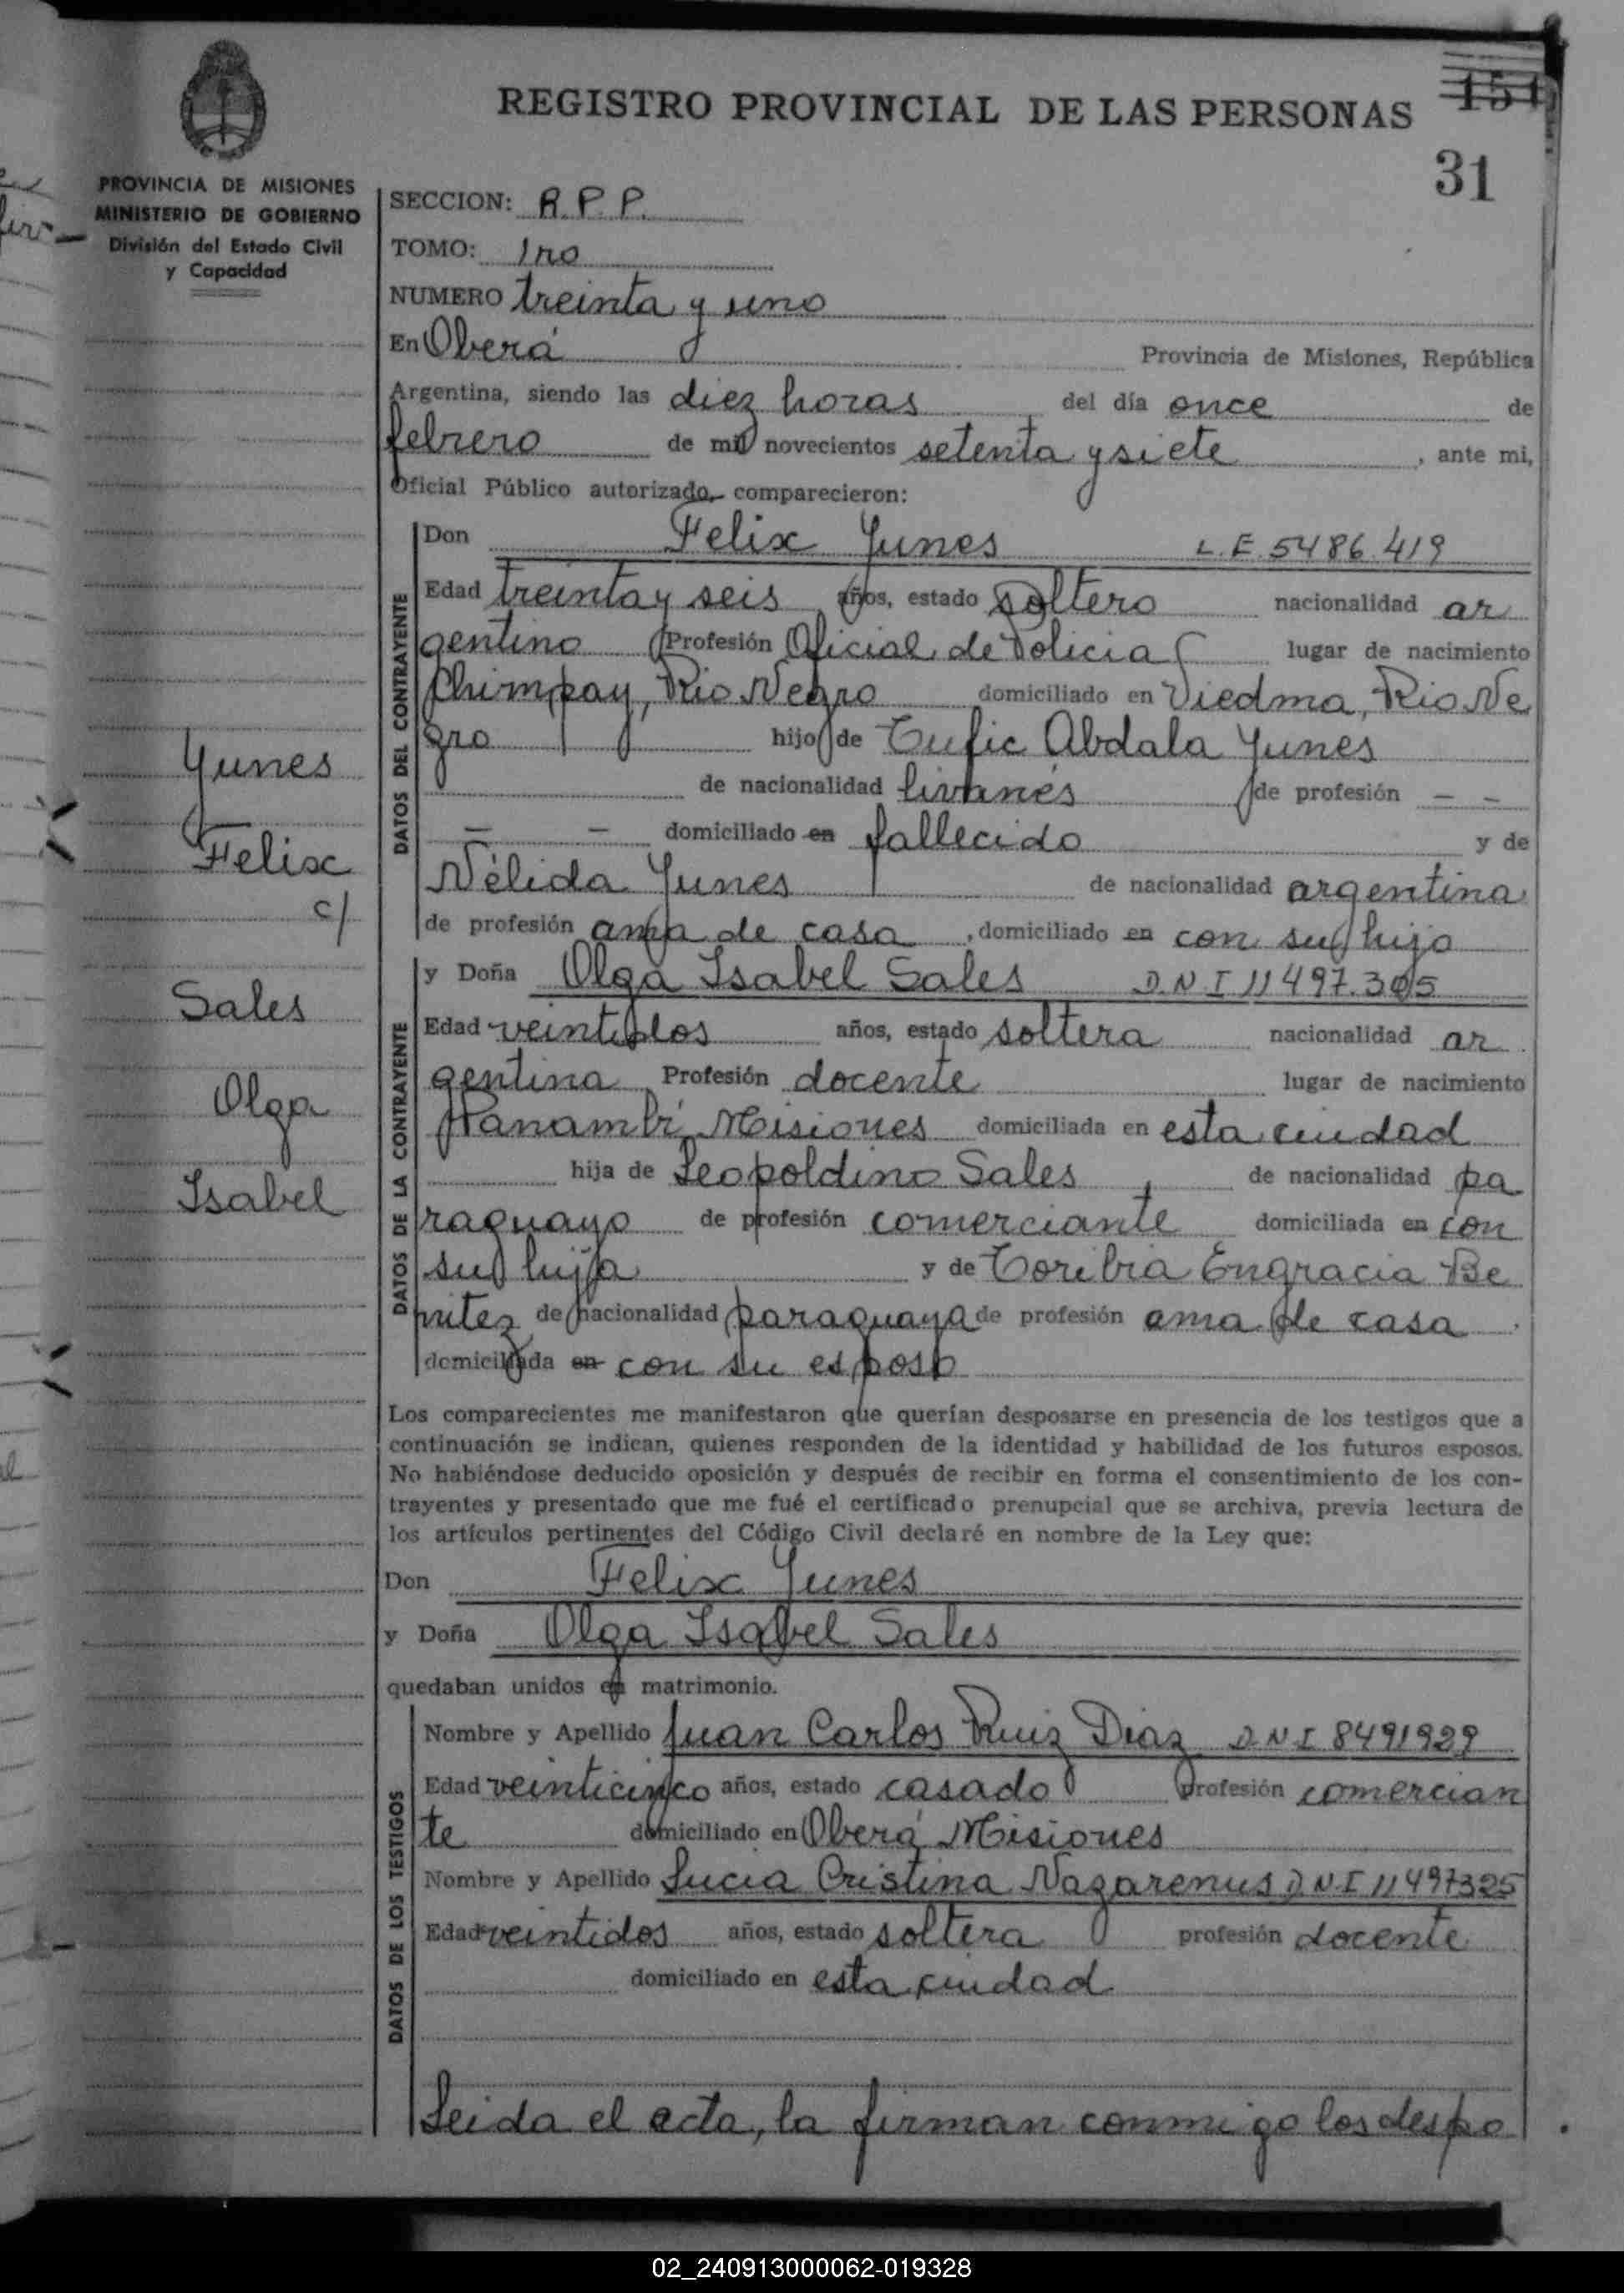 REGISTRO PROVINCIAL DE LAS PERSONAS
151
31
PROVINCIA DE MISIONES
MINISTERIO DE GOBIERNO
División del Estado Civil
y Capacidad
SECCION: R.P.P.
TOMO: 1ro
NUMERO treinta y uno
En Oberá Provincia de Misiones, República
Argentina, siendo las diez horas del día once de
febrero de mil novecientos setenta y siete, ante mi,
Oficial Público autorizado, comparecieron:
DATOS DEL CONTRAYENTE
Don Felix Yunes L.E. 5486.419
Edad treinta y seis años, estado soltero nacionalidad ar
gentino Profesión Oficial de Policia lugar de nacimiento
Chimpay, Rio Negro domiciliado en Viedma, Rio Ne
gro hijo de Tufic Abdala Yunes
de nacionalidad livanés de profesión — —
— — domiciliado en fallecido y de
Nélida Yunes de nacionalidad argentina
de profesión ama de casa, domiciliado en con su hijo
DATOS DE LA CONTRAYENTE
y Doña Olga Isabel Sales D.N.I 11497.305
Edad veintidos años, estado soltera nacionalidad ar
gentina Profesión docente lugar de nacimiento
Panambí, Misiones domiciliada en esta ciudad
hija de Leopoldino Sales de nacionalidad pa
raguayo de profesión comerciante domiciliada en con
su hija y de Toribia Engracia Be
nitez de nacionalidad paraguaya de profesión ama de casa
domiciliada en con su esposo
Yunes
Felix
c/
Sales
Olga
Isabel
Los comparecientes me manifestaron que querían desposarse en presencia de los testigos que a
continuación se indican, quienes responden de la identidad y habilidad de los futuros esposos.
No habiéndose deducido oposición y después de recibir en forma el consentimiento de los con-
trayentes y presentado que me fué el certificado prenupcial que se archiva, previa lectura de
los artículos pertinentes del Código Civil declaré en nombre de la Ley que:
Don Felix Yunes
y Doña Olga Isabel Sales
quedaban unidos en matrimonio.
DATOS DE LOS TESTIGOS
Nombre y Apellido Juan Carlos Ruiz Diaz D.N.I 8491929
Edad veinticinco años, estado casado profesión comercian
te domiciliado en Oberá Misiones
Nombre y Apellido Lucia Cristina Nazarenus D.N.I 11497325
Edad veintidos años, estado soltera profesión docente
domiciliado en esta ciudad
Leida el acta, la firman conmigo los despo
02_240913000062-019328